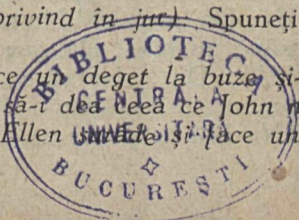 privind în jur). Spuneți
ce un deget la buze și-
să-i dea ceea ce John n
Ellen și face un
BIBLIOTECA
CENTRALĂ
UNIVERSITARĂ
BUCUREȘTI